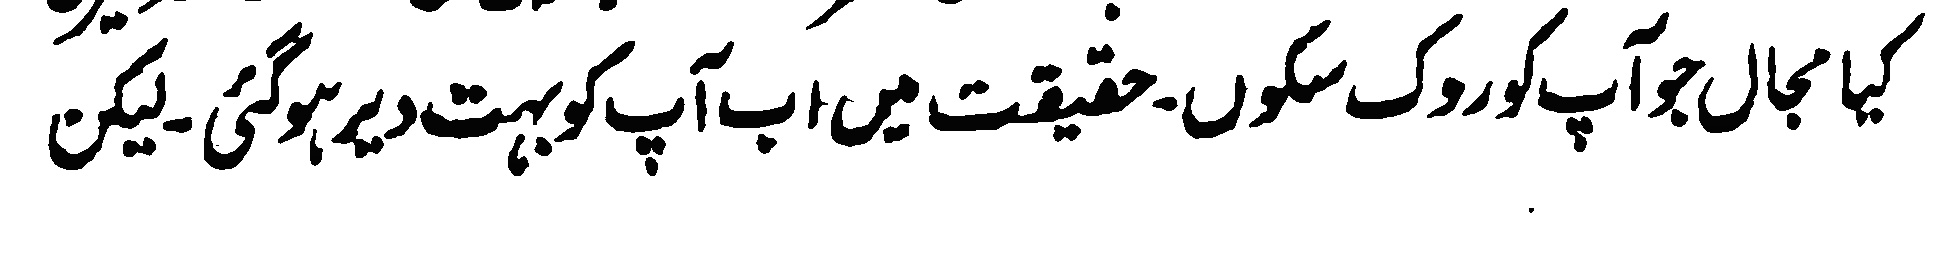 کیا مجال جو آپ کو روک سکوں۔ حقیقت میں اب آپ کو بہت دیر ہو گئی۔ لیکن